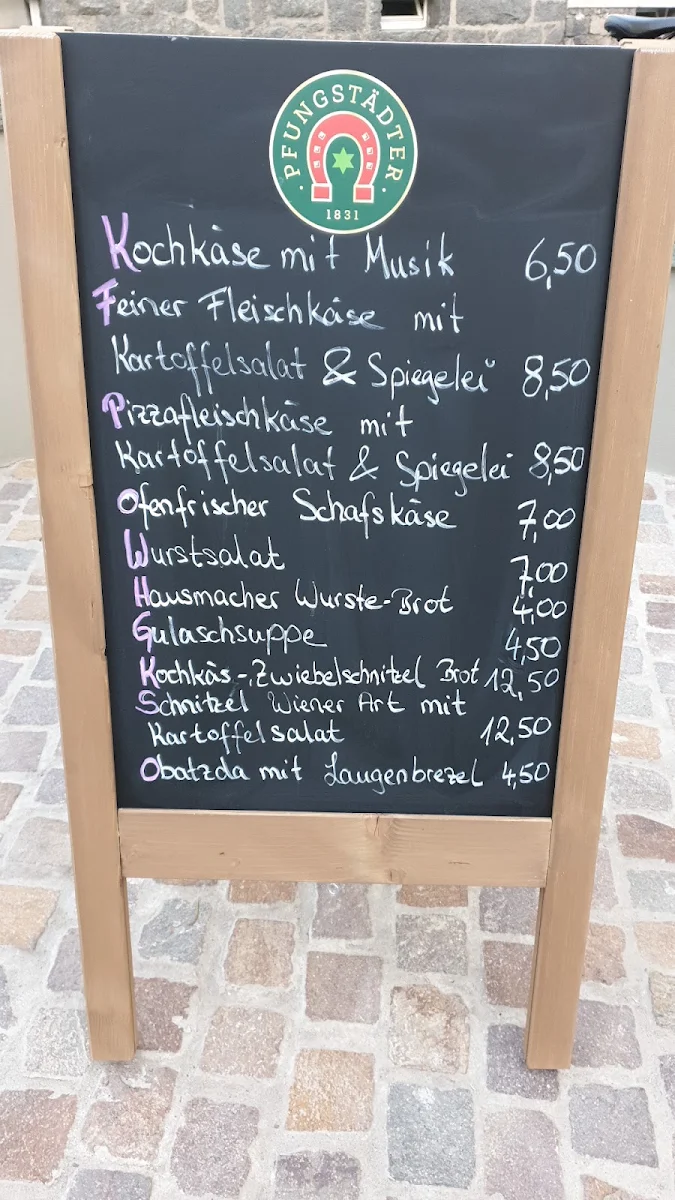 PFUNGSTÄDTER
1831
Kochkäse mit Musik 6,50
Feiner Fleischkäse mit
Kartoffelsalat & Spiegelei 8,50
Pizzafleischkäse mit
Kartoffelsalat & Spiegelei 8,50
Ofenfrischer Schafskäse 7,00
Wurstsalat 7,00
Hausmacher Wurste-Brot 4,00
Gulaschsuppe 4,50
Kochkäs-, Zwiebelschnitzel Brot 12,50
Schnitzel Wiener Art mit
Kartoffelsalat 12,50
Obatzda mit Laugenbrezel 4,50